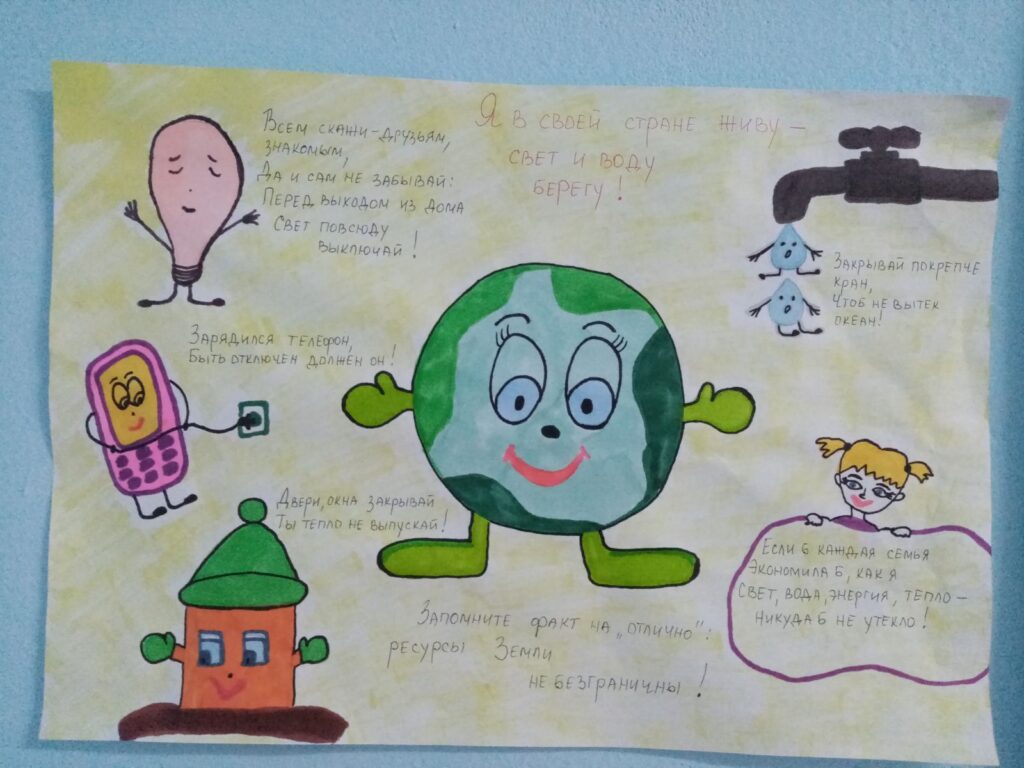 Я в своей стране живу –
свет и воду
берегу!
Всем скажи-друзьям,
знакомым,
Да и сам не забывай:
Перед выходом из дома
Свет повсюду
выключай!
Закрывай покрепче
кран,
Чтоб не вытек
океан!
Зарядился телефон,
Быть отключен должен он!
Двери, окна закрывай
Ты тепло не выпускай!
Если б каждая семья
Экономила б, как я
Свет, вода, энергия, тепло –
Никуда б не утекло!
Запомните факт на „отлично":
ресурсы Земли
не безграничны!